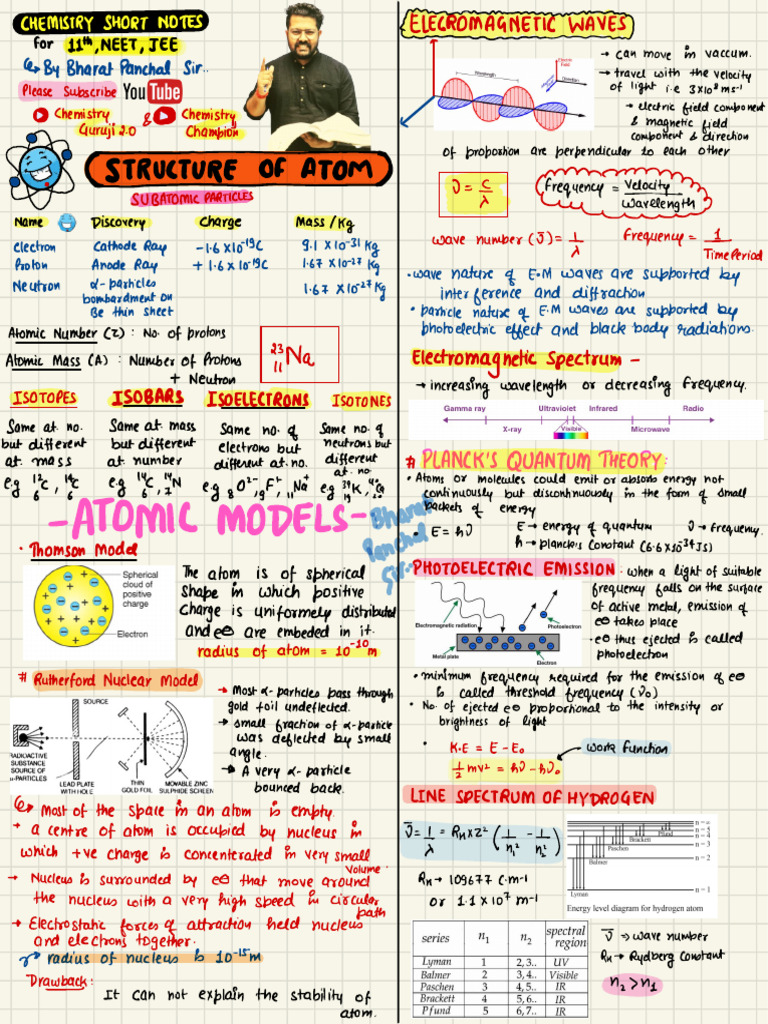 CHEMISTRY SHORT NOTES
for 11th, NEET, JEE
By Bharat Panchal Sir..
Please Subscribe YouTube
Chemistry Guruji 2.0 & Chemistry Champion
STRUCTURE OF ATOM
SUBATOMIC PARTICLES
Name Discovery Charge Mass/Kg
Electron Cathode Ray -1.6×10⁻¹⁹C 9.1×10⁻³¹ Kg
Proton Anode Ray +1.6×10⁻¹⁹C 1.67×10⁻²⁷ Kg
Neutron α-particles 1.67×10⁻²⁷ Kg
bombardment on
Be thin sheet
Atomic Number (Z) : No. of protons
Atomic Mass (A) : Number of Protons
+ Neutron
²³₁₁Na
ISOTOPES
Same at. no.
but different
at. mass
e.g ¹²₆C, ¹⁴₆C
ISOBARS
Same at. mass
but different
at. number
e.g ¹⁴₆C, ¹⁴₇N
ISOELECTRONS
Same no. of
electrons but
different at. no.
e.g ₈O²⁻, ₉F⁻, ₁₁Na⁺
ISOTONES
Same no. of
neutrons but
different
at. no
e.g ³⁹₁₉K,
-ATOMIC MODELS-
Bharat
Panchal
Sir..
Thomson Model
Spherical
cloud of
positive
charge
Electron
The atom is of spherical
shape in which positive
charge is uniformely distributed
and e⊖ are embeded in it.
radius of atom = 10⁻¹⁰ m
# Rutherford Nuclear Model
SOURCE
RADIOACTIVE
SUBSTANCE
SOURCE OF
α-PARTICLES
LEAD PLATE
WITH HOLE
THIN
GOLD FOIL
MOVABLE ZINC
SULPHIDE SCREEN
→ Most α-particles pass through
gold foil undeflected.
→ small fraction of α-particle
was deflected by small
angle.
→ A very α-particle
bounced back.
Most of the space in an atom is empty.
→ a centre of atom is occupied by nucleus in
which +ve charge is concenterated in very small
volume.
→ Nucleus is surrounded by e⊖ that move around
the nucleus with a very high speed in circular
path
→ Electrostatic forces of attraction held nucleus
and electrons together.
radius of nucleus is 10⁻¹⁵ m
Drawback:
It can not explain the stability of
atom.
ELECROMAGNETIC WAVES
Wavelength
Electric
Field
Direction
→ can move in vaccum.
→ travel with the velocity
of light i.e 3×10⁸ ms⁻¹
→ electric field component
& magnetic field
component & direction
of proportion are perpendicular to each other
ν = c/λ
Frequency = Velocity/Wavelength
wave number (ν̄) = 1/λ
Frequency = 1/Time Period
• wave nature of E.M waves are supported by
interference and diffraction
• particle nature of E.M waves are supported by
photoelectric effect and black body radiations.
Electromagnetic Spectrum -
→ increasing wavelength or decreasing frequency.
Gamma ray Ultraviolet Infrared Radio
X-ray Visible Microwave
# PLANCK'S QUANTUM THEORY:
• Atoms or molecules could emit or absorb energy not
continuously but discontinuously in the form of small
packets of energy
• E = hν E → energy of quantum ν → frequency.
h → planck's constant (6.6×10⁻³⁴ JS)
PHOTOELECTRIC EMISSION : when a light of suitable
frequency falls on the surface
of active metal, emission of
e⊖ takes place
• e⊖ thus ejected is called
photoelectron
Electromagnetic radiation
Photoelectron
Metal plate
Electron
• minimum frequency required for the emission of e⊖
is called threshold frequency (ν₀)
• No. of ejected e⊖ proportional to the intensity or
brightness of light
• K.E = E - E₀ work function
½ mv² = hν - hν₀
LINE SPECTRUM OF HYDROGEN
ν̄ = 1/λ = R_H × Z² (1/n₁² - 1/n₂²)
R_H → 109677 cm⁻¹
or 1.1×10⁷ m⁻¹
Pfund
Brackett
Paschen
Balmer
Lyman
n = 3
n = 2
n = 1
Energy level diagram for hydrogen atom
series n₁ n₂ spectral region
Lyman 1 2,3.. UV
Balmer 2 3,4.. Visible
Paschen 3 4,5.. IR
Brackett 4 5,6.. IR
Pfund 5 6,7.. IR
ν̄ → wave number
R_H → Rydberg Constant
n₂ > n₁